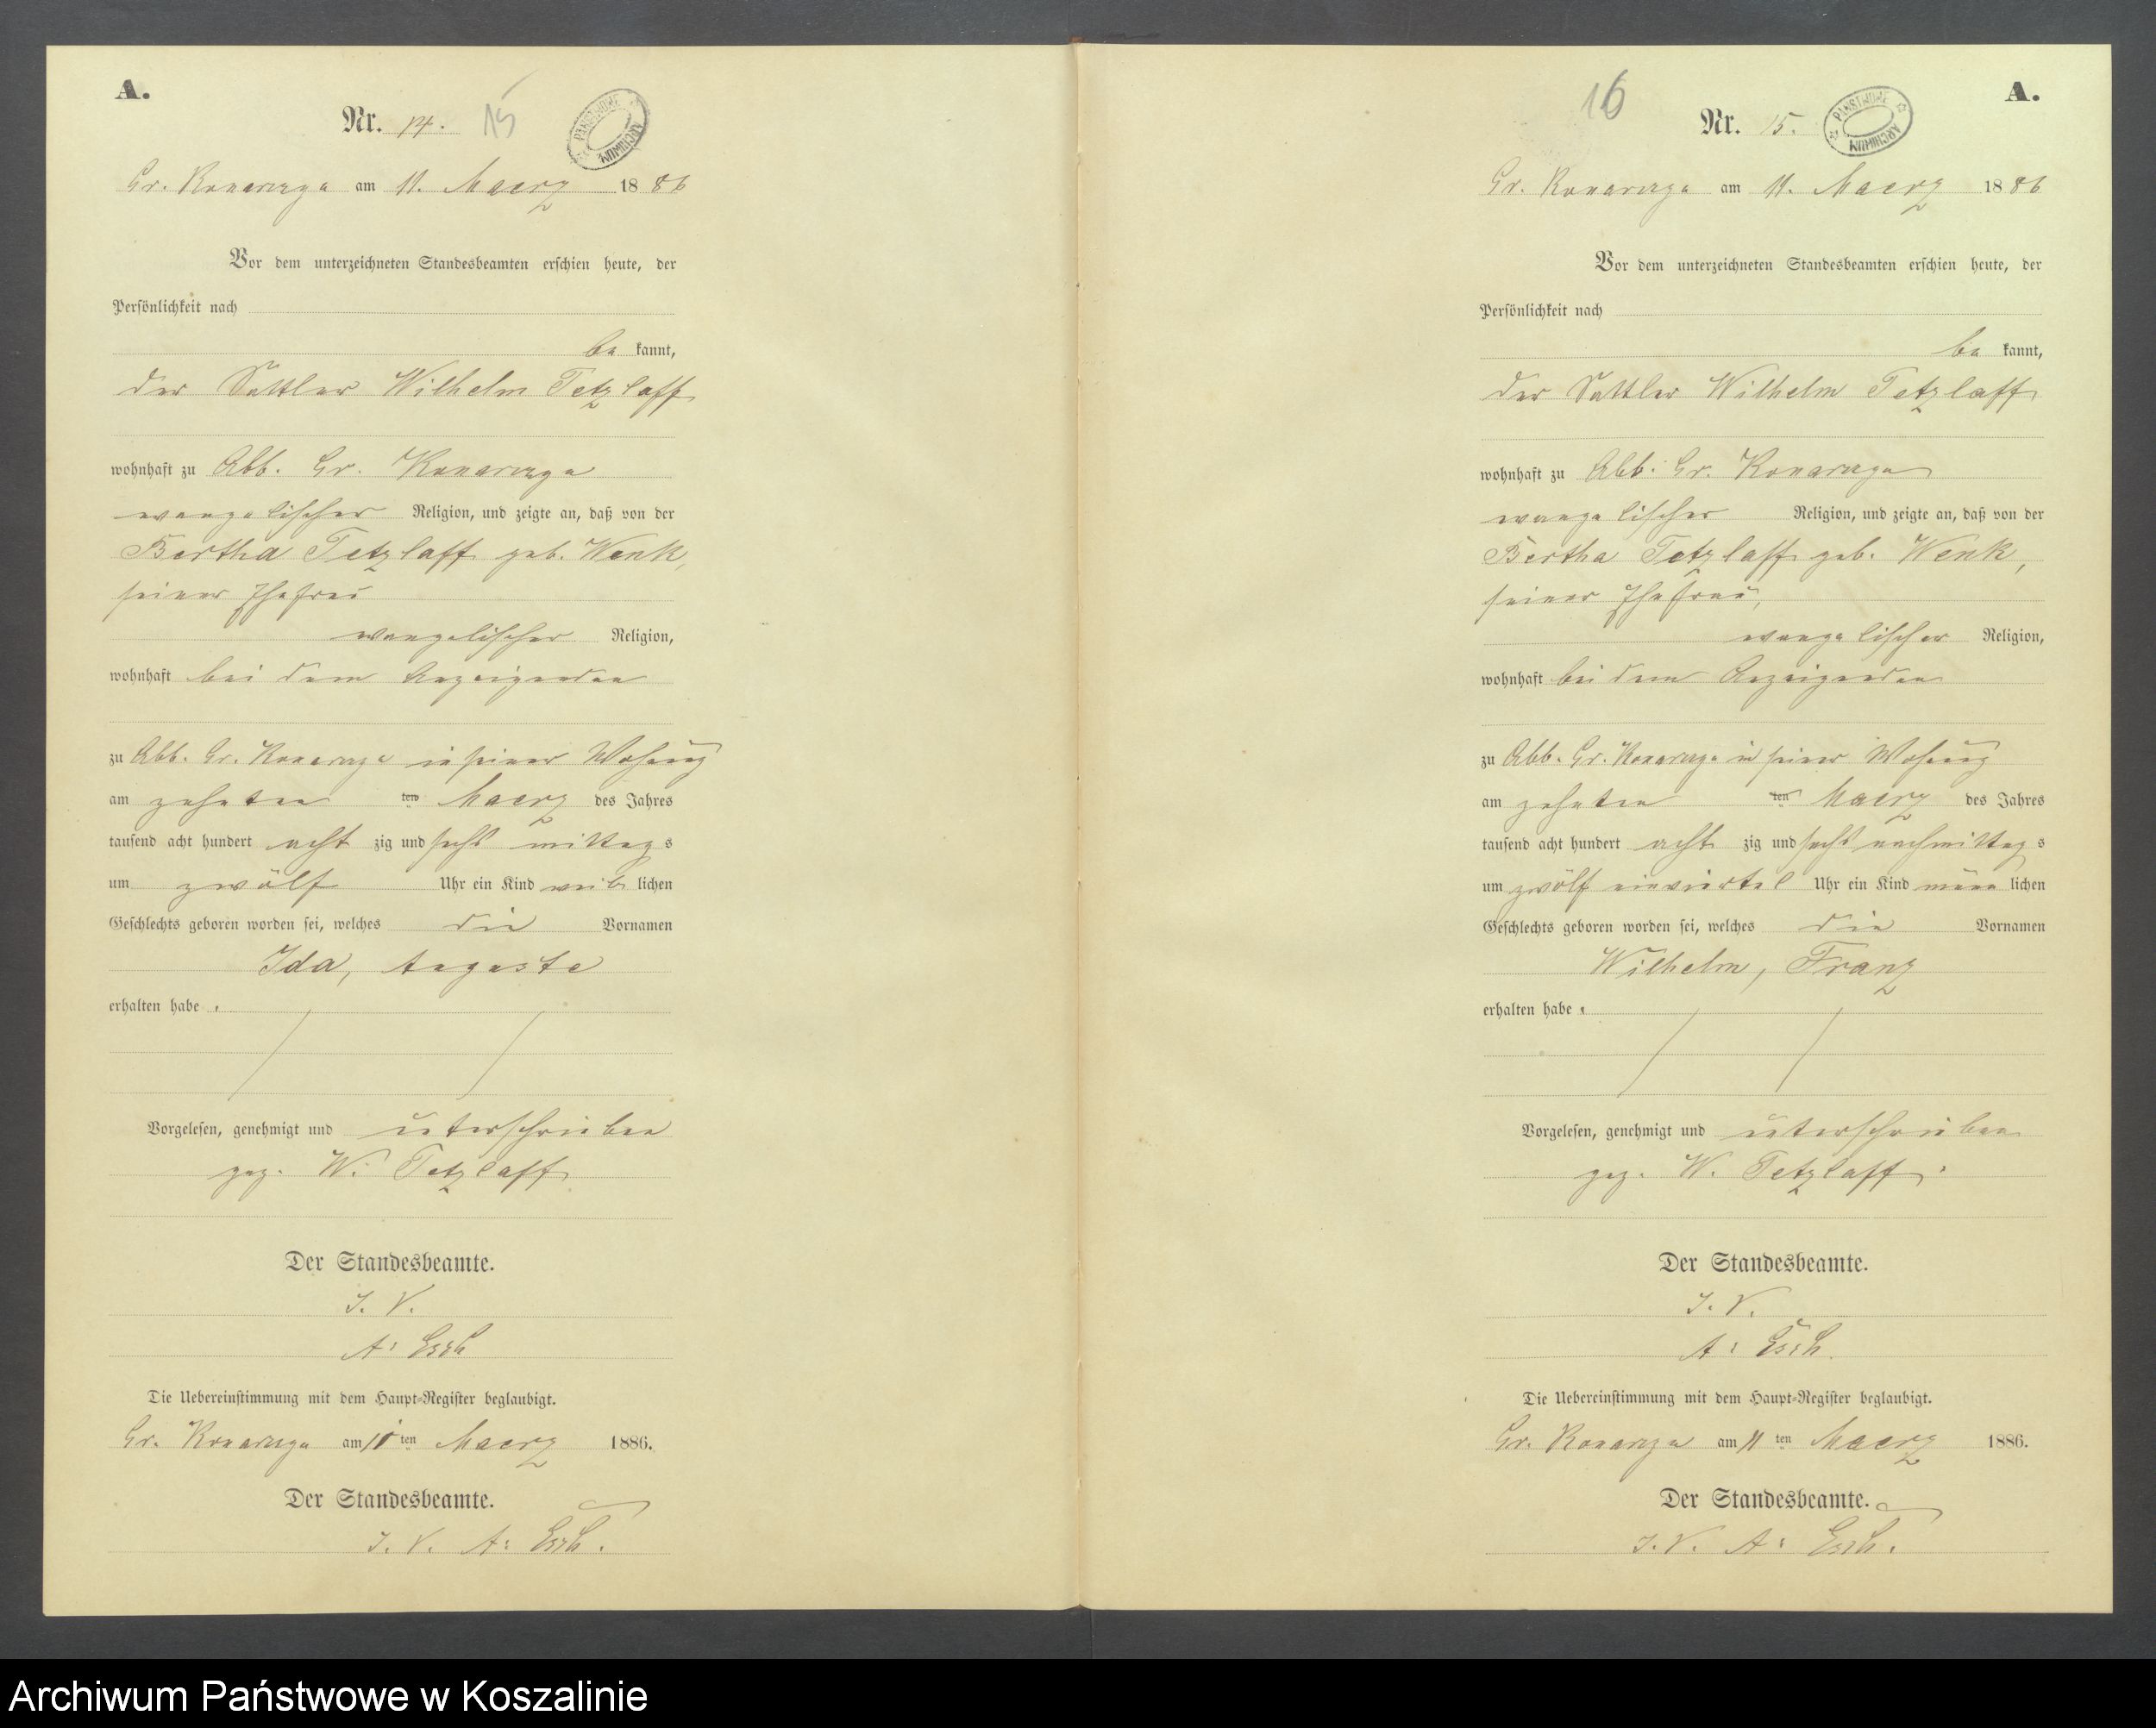 A.
Nr. 14. 15
PAŃSTWOWE ARCHIWUM
Gr. Konarczyn am 11. Maerz 1886
Vor dem unterzeichneten Standesbeamten erschien heute, der
Persönlichkeit nach
be kannt,
der Sattler Wilhelm Tetzlaff
wohnhaft zu Abb. Gr. Konarczyn
evangelischer Religion, und zeigte an, daß von der
Bertha Tetzlaff geb. Wenk,
seiner Ehefrau
evangelischer Religion,
wohnhaft bei dem Anzeigenden
zu Abb. Gr. Konarczyn in seiner Wohnung
am zehnten ten Maerz des Jahres
tausend acht hundert acht zig und sechs mittags
um zwölf Uhr ein Kind weib lichen
Geschlechts geboren worden sei, welches die Vornamen
Ida, Auguste
erhalten habe.
Vorgelesen, genehmigt und unterschrieben
gez. W. Tetzlaff
Der Standesbeamte.
I. V.
A:
Die Uebereinstimmung mit dem Haupt-Register beglaubigt.
Gr. Konarczyn am 11 ten Maerz 1886.
Der Standesbeamte.
I. V. A:
16
A.
Nr. 15.
PAŃSTWOWE ARCHIWUM
Gr. Konarczyn am 11. Maerz 1886
Vor dem unterzeichneten Standesbeamten erschien heute, der
Persönlichkeit nach
be kannt,
der Sattler Wilhelm Tetzlaff
wohnhaft zu Abb. Gr. Konarczyn
evangelischer Religion, und zeigte an, daß von der
Bertha Tetzlaff geb. Wenk,
seiner Ehefrau,
evangelischer Religion,
wohnhaft bei dem Anzeigenden
zu Abb. Gr. Konarczyn in seiner Wohnung
am zehnten ten Maerz des Jahres
tausend acht hundert acht zig und sechs nachmittags
um zwölf einviertel Uhr ein Kind männ lichen
Geschlechts geboren worden sei, welches die Vornamen
Wilhelm, Franz
erhalten habe.
Vorgelesen, genehmigt und unterschrieben
gez. W. Tetzlaff.
Der Standesbeamte.
I. V.
A:
Die Uebereinstimmung mit dem Haupt-Register beglaubigt.
Gr. Konarczyn am 11 ten Maerz 1886.
Der Standesbeamte.
I. V. A:
Archiwum Państwowe w Koszalinie